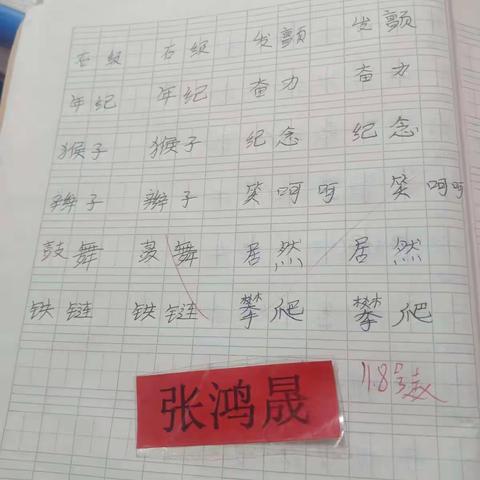 石级 石级 发颤 发颤
年纪 年纪 奋力 奋力
猴子 猴子 纪念 纪念
辫子 辫子 笑呵呵 笑呵呵
鼓舞 鼓舞 居然 居然
铁链 铁链 攀爬 攀爬
11.8
张鸿晟